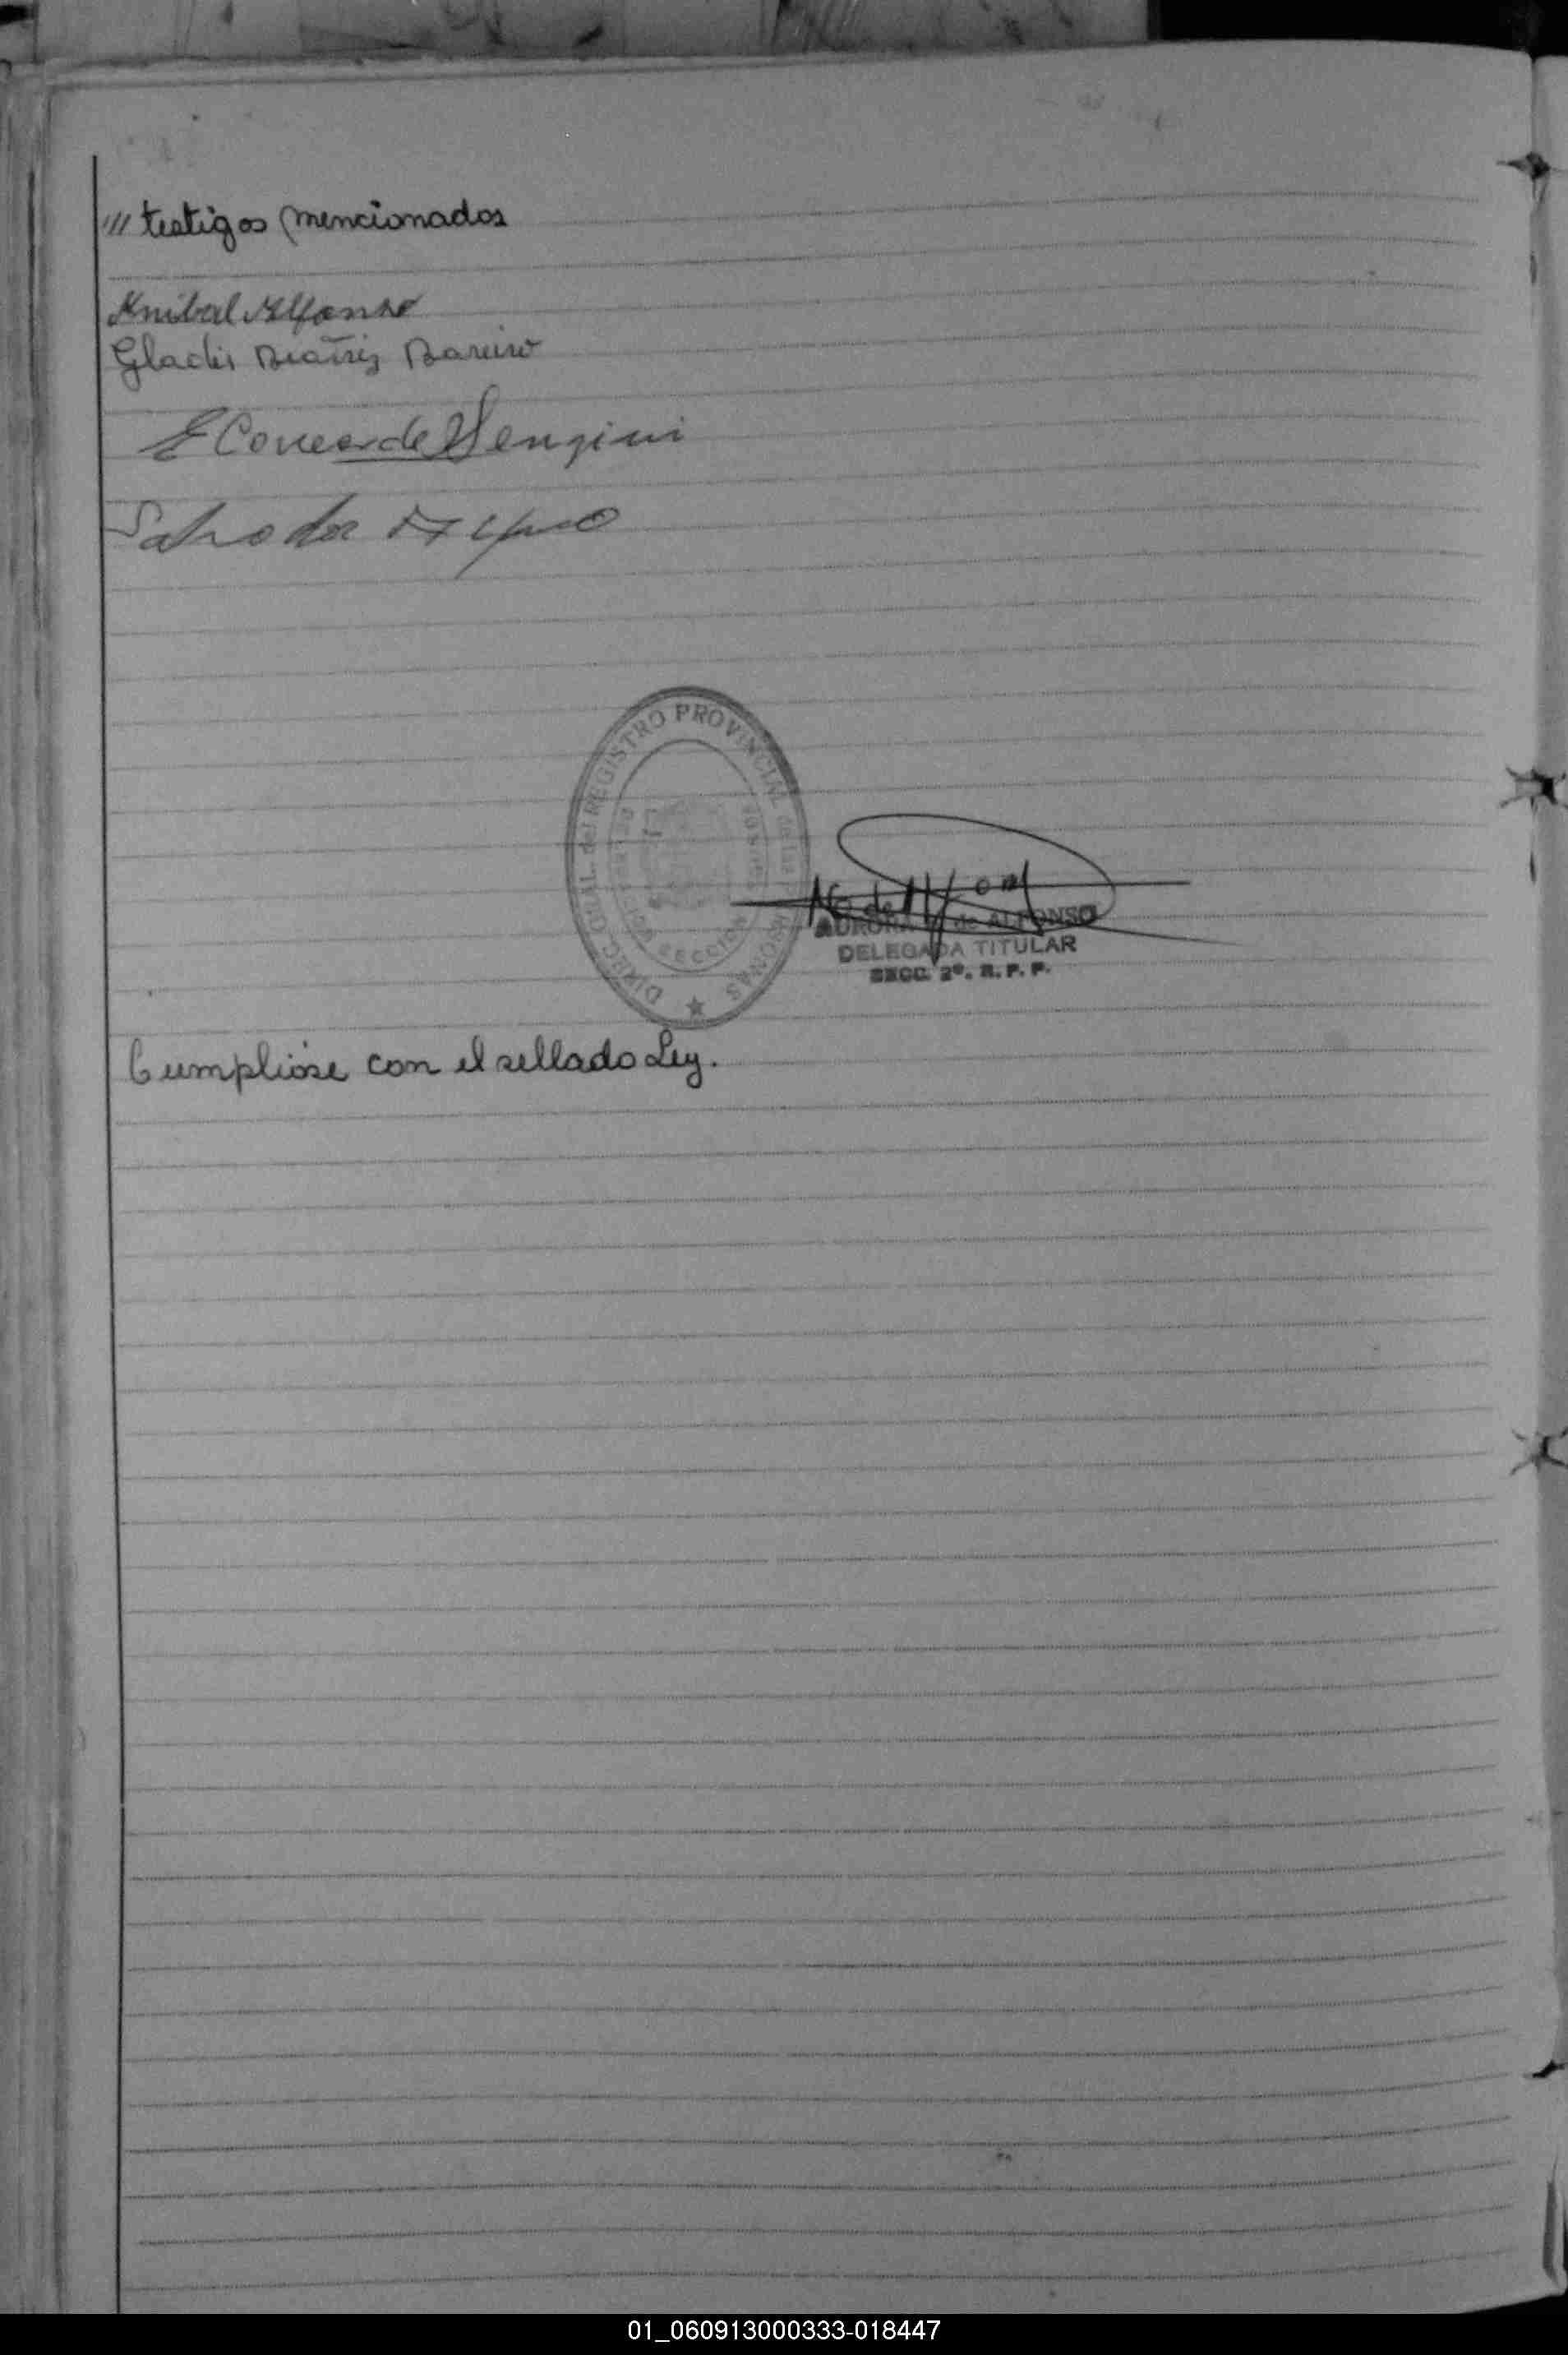 /// testigos mencionados
Anibal Alfonso
Gladis Beatriz Bareiro
E C de
Salvador
DIREC. GRAL. del REGISTRO PROVINCIAL de las PERSONAS
SECCION
AURORA de ALFONSO
DELEGADA TITULAR
SECC. 2º. R. P. P.
Cumplióse con el sellado Ley.
01_060913000333-018447